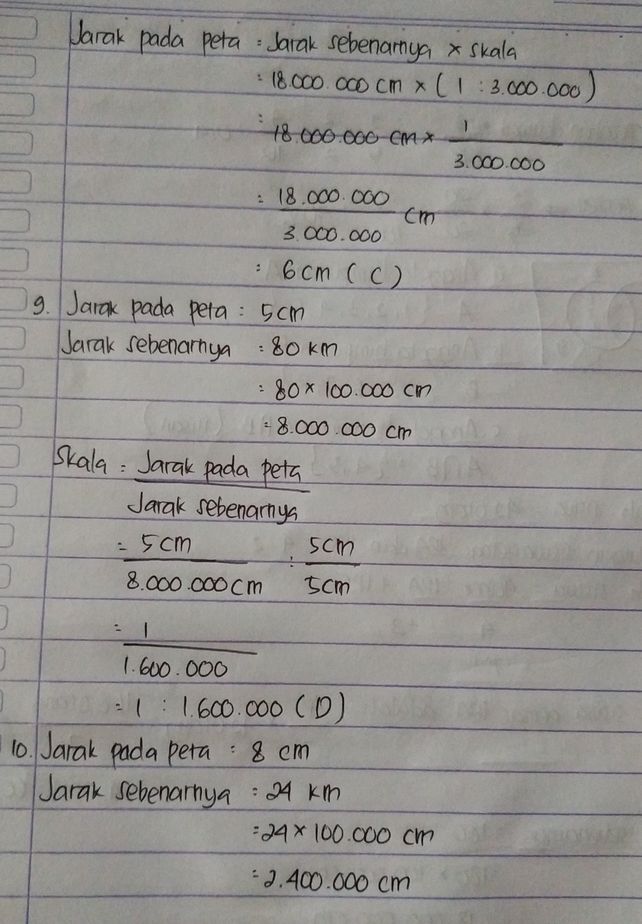 Jarak pada peta = Jarak sebenarnya x skala
= 18.000.000 cm x (1 : 3.000.000)
= 18.000.000 cm x 1
3.000.000
= 18.000.000 cm
3.000.000
= 6 cm (C)
9. Jarak pada peta : 5 cm
Jarak sebenarnya = 80 km
= 80 x 100.000 cm
= 8.000.000 cm
Skala = Jarak pada peta
Jarak sebenarnya
= 5 cm : 5 cm
8.000.000 cm 5 cm
= 1
1.600.000
= 1 : 1.600.000 (D)
10. Jarak pada peta : 8 cm
Jarak sebenarnya = 24 km
= 24 x 100.000 cm
= 2.400.000 cm